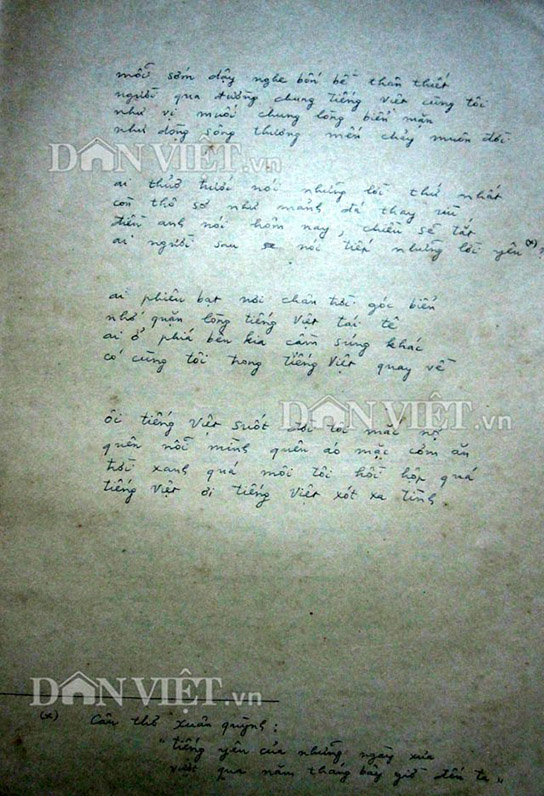 mỗi sớm dậy nghe bốn bề thân thiết
người qua đường chung tiếng Việt cùng tôi
như vị muối chung lòng biển mặn
như dòng sông thương mến chảy muôn đời
DÂN VIỆT.vn
ai thuở trước nói những lời thứ nhất
còn thô sơ như mảnh đá thay rìu
điều anh nói hôm nay, chiều sẽ tắt
ai người sau nói tiếp những lời yêu (*)?
ai phiêu bạt nơi chân trời góc biển
nhớ quặn lòng tiếng Việt tái tê
ai ở phía bên kia cầm súng khác
có cùng tôi trong tiếng Việt quay về
DÂN VIỆT.vn
ôi tiếng Việt suốt đời tôi mắc nợ
quên nỗi mình quên áo mặc cơm ăn
trời xanh quá môi tôi hồi hộp quá
tiếng Việt ơi tiếng Việt xót xa tình.
DÂN VIỆT.vn
(*) Câu thơ Xuân Quỳnh:
"tiếng yêu của những ngày xưa
vượt qua năm tháng bây giờ đến ta"